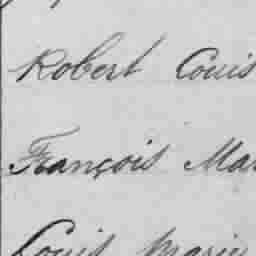 Robert Louis
François Mar
Louis Marie